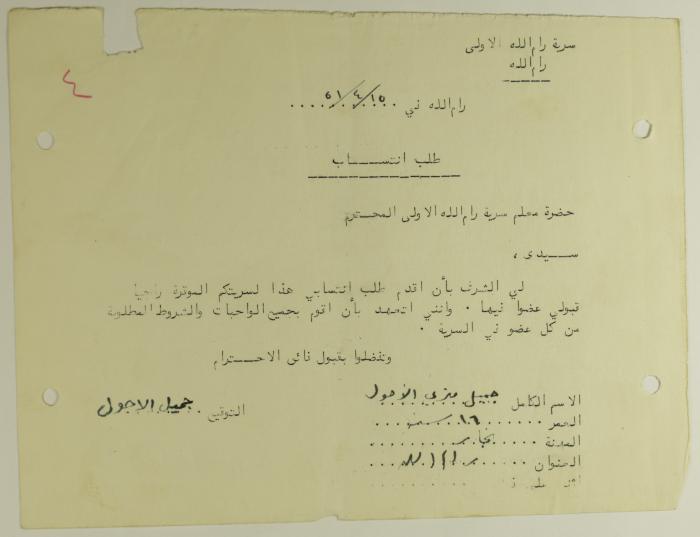 سرية رام الله الاولى
رام الله
٤
رام الله في ١٥/٤/٥١
طلب انتســـاب
حضرة معلم سرية رام الله الاولى المحـترم
ســيدى ،
لي الشرف بأن اقدم طلب انتسابي هذا لسريتكم الموقرة راجيا
قبولي عضوا فيها . وانني اتعهد بأن اقوم بجميع الواجبات والشروط المطلوبة
من كل عضو في السرية .
وتفضلوا بقبول فائق الاحــترام
الاسم الكامل جميل الأجول
التوقيع جميل الاجول
العمر ١٦ سنه
المهنة
العنوان رام الله